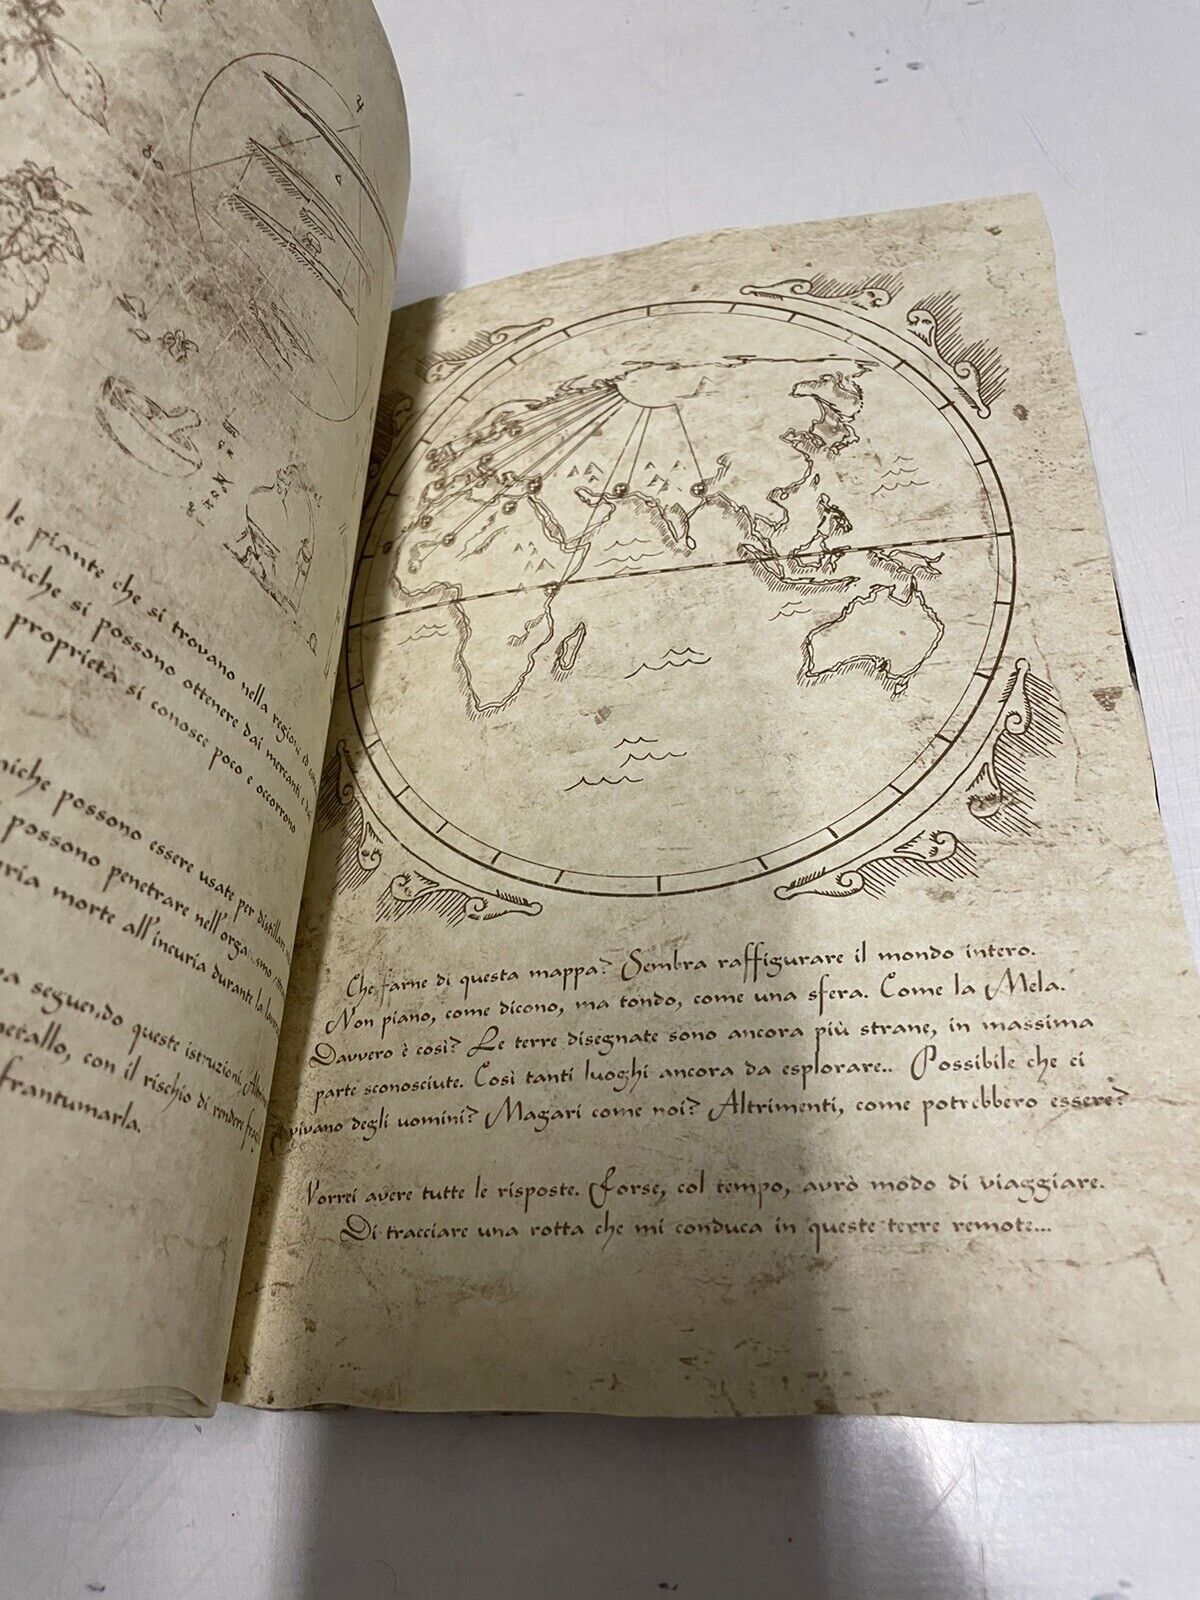 le piante che si trovano nella regione ed
si possono ottenere dai mercanti e
proprietà si conosce poco e occorrono
possono essere usate per
possono penetrare nell'
morte all'incuria durante la
seguendo queste istruzioni.
con il rischio di rendere
frantumarla.
Che farne di questa mappa? Sembra raffigurare il mondo intero.
Non piano, come dicono, ma tondo, come una sfera. Come la Mela.
Davvero è così? Le terre disegnate sono ancora più strane, in massima
parte sconosciute. Così tanti luoghi ancora da esplorare.. Possibile che ci
vivano degli uomini? Magari come noi? Altrimenti, come potrebbero essere?
Vorrei avere tutte le risposte. Forse, col tempo, avrò modo di viaggiare.
Di tracciare una rotta che mi conduca in queste terre remote...